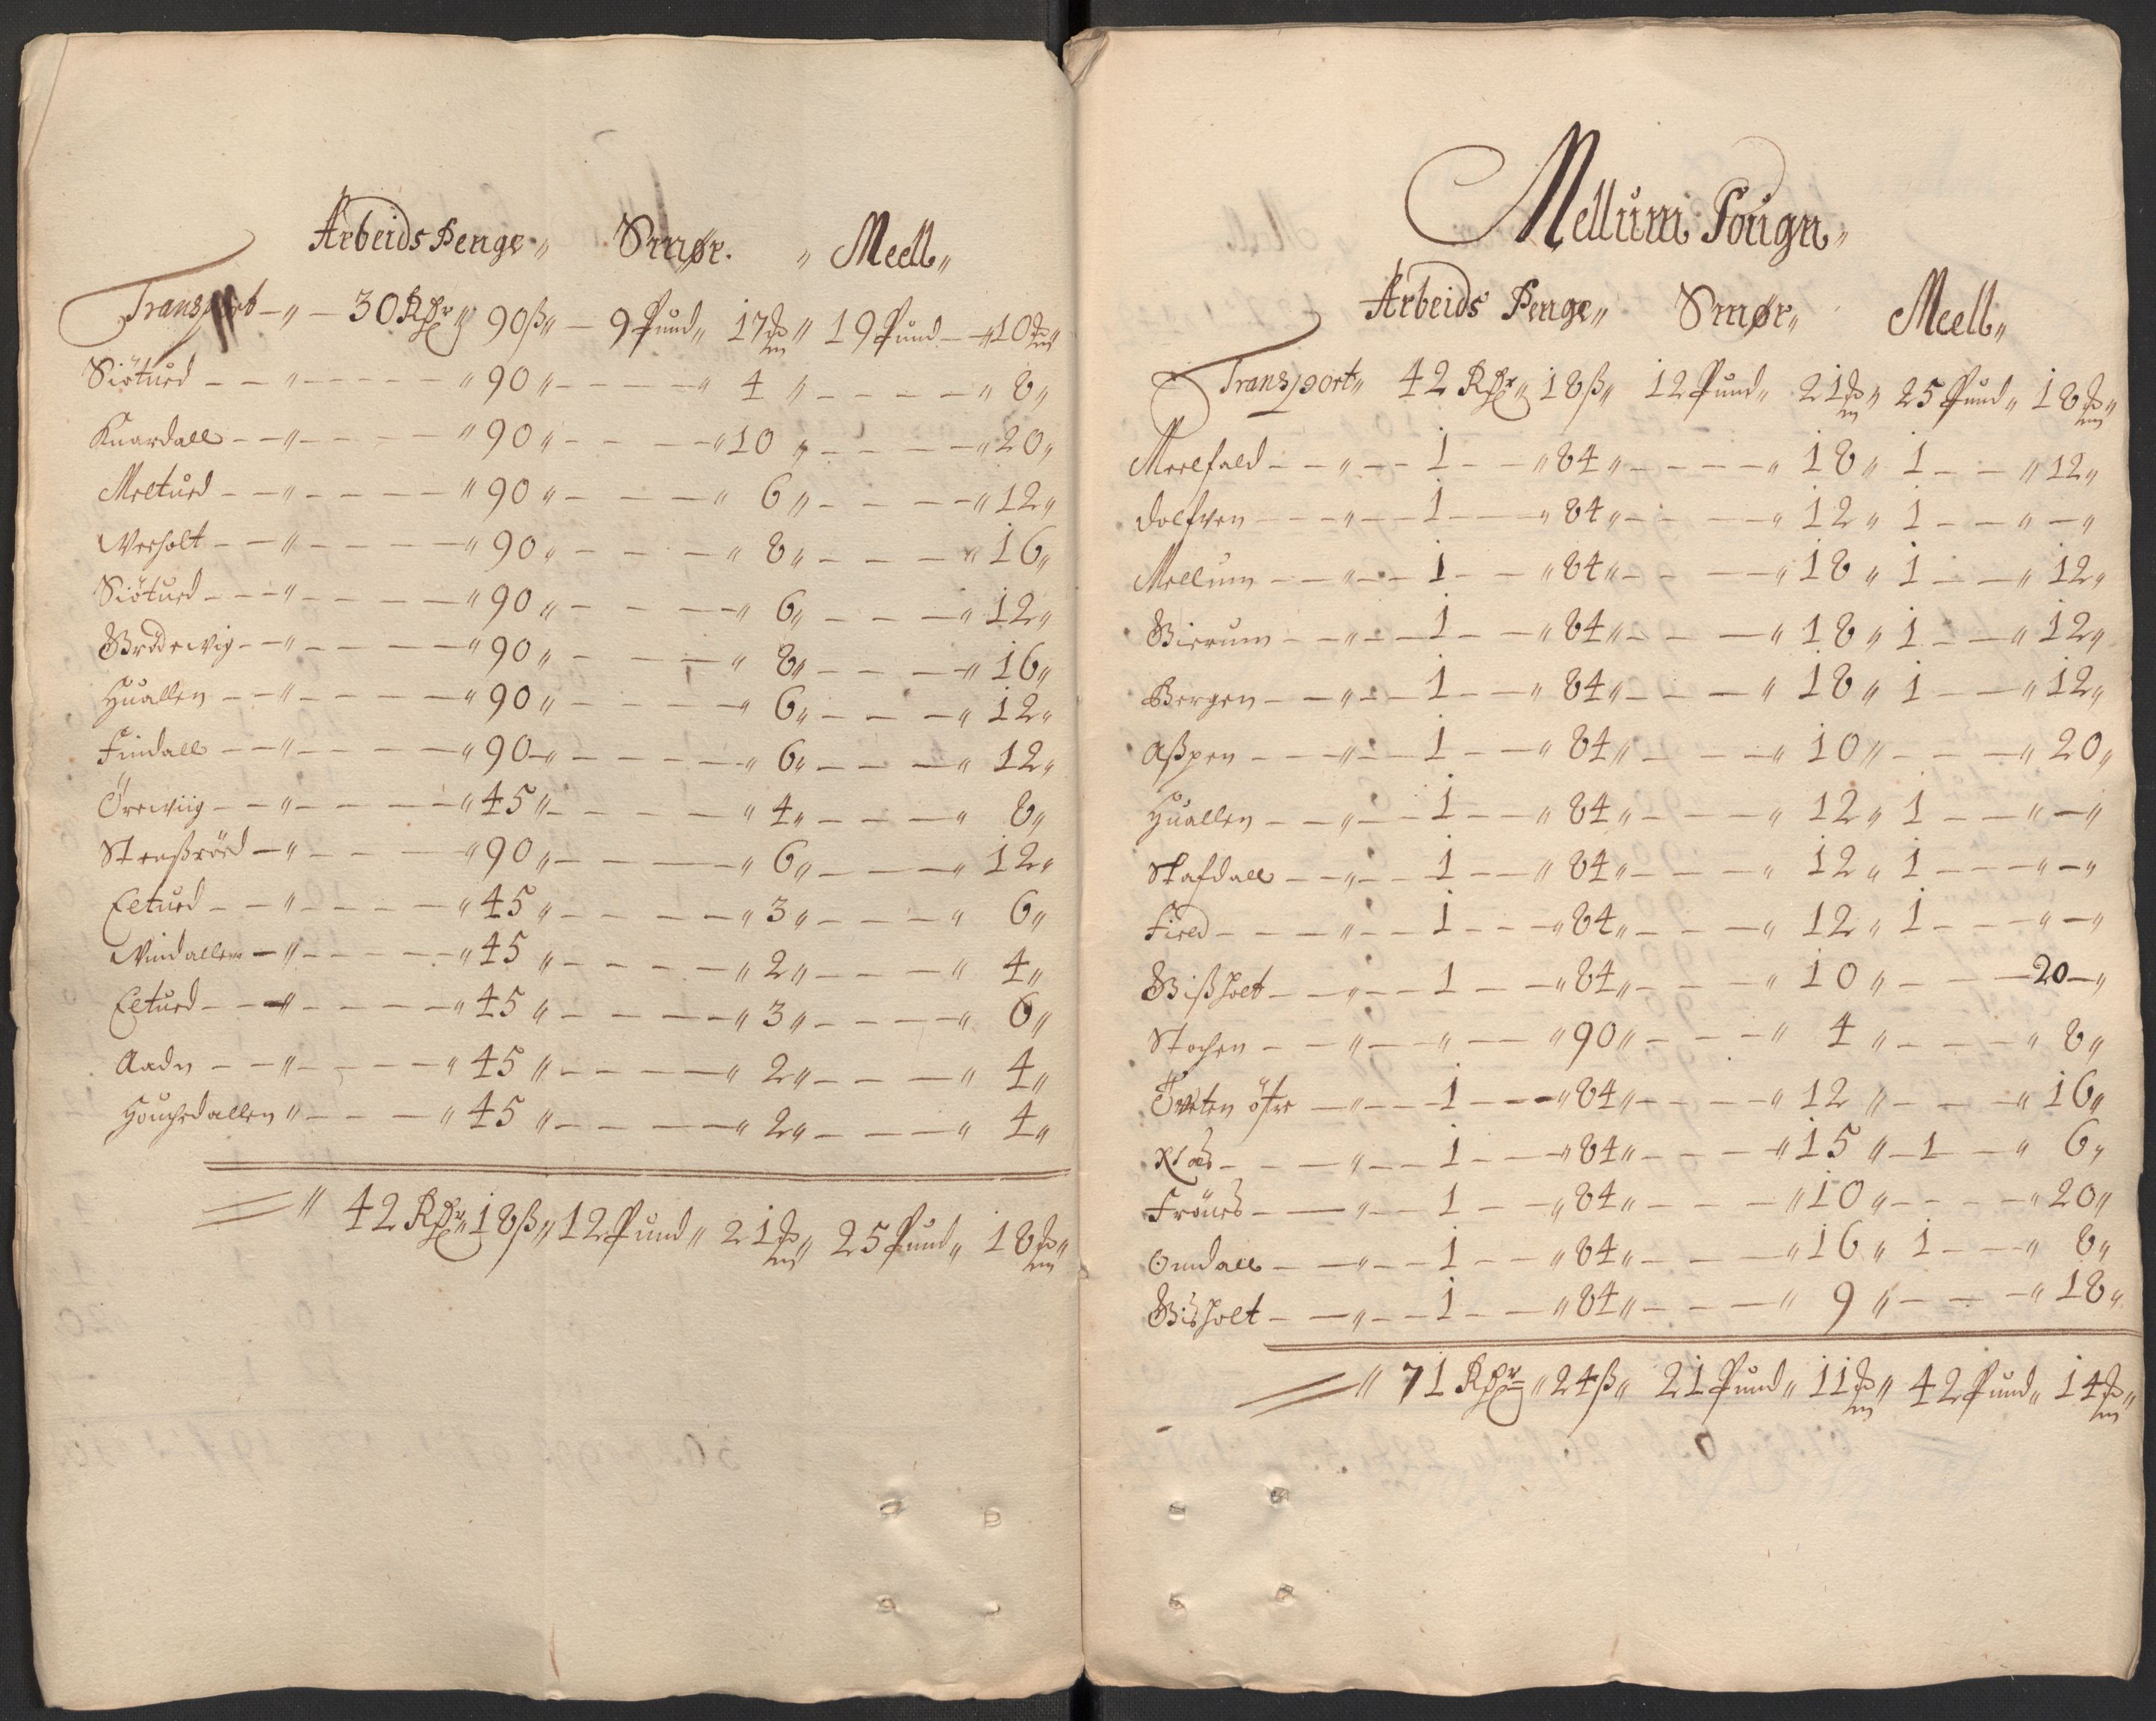 Arbeids Penge„ Smør. „ Meell„
Transport — „ — 30 Rdr„ 90ß„ — 9 Pund„ 17 ℔„ 19 Pund — „ 10 ℔„
Siötued — — „ — — — — „ 90 „ — — — — „ 4 „ — — — — „ 8„
Knardall — — „ — — — — „ 90 „ — — — — „ 10 „ — — — — „ 20„
Meltued — — „ — — — — „ 90 „ — — — — „ 6 „ — — — — „ 12„
Versholt — — „ — — — — „ 90 „ — — — — „ 8„ — — — — „ 16„
Siötued — — „ — — — — „ 90 „ — — — — „ 6„ — — — „ 12„
Brödewig — — „ — — — — „ 90 „ — — — — „ 8„ — — — — „ 16„
Huallen — — „ — — — — „ 90 „ — — — — „ 6„ — — — „ 12„
Findall — — „ — — — — „ 90 „ — — — — „ 6„ — — — „ 12„
Örewiig — — „ — — — — „ 45 „ — — — — „ 4„ — — — „ 8„
Straßröed — „ — — — — „ 90 „ — — — — „ 6„ — — — „ 12„
Eltued — — „ — — — — „ 45 „ — — — — „ 3„ — — — „ 6„
Vindallen — „ — — — — „ 45 „ — — — — „ 2„ — — — „ 4„
Eltued — — „ — — — — „ 45 „ — — — — „ 3„ — — — „ 6„
Aadn — — „ — — — — „ 45 „ — — — — „ 2„ — — — „ 4„
Houchedallen „ — — — „ 45 „ — — — — „ 2„ — — — „ 4„
„ 42 Rdr„ 18ß„ 12 Pund„ 21 ℔„ 25 Pund„ 18 ℔„
Mellum Fougn„
Arbeids Penge„ Smør„ Meell„
Transport„ 42 Rdr„ 18ß„ 12 Pund„ 21 ℔„ 25 Pund„ 18 ℔„
Meelfald — — „ — — 1 — — „ 84 „ — — — — „ 18 „ 1 — — „ 12„
Dolfven — — — „ — — 1 — — „ 84 „ — — — „ 12 „ 1 — — „ — „
Mellum — — „ — — 1 — — „ 84 „ — — — „ 18 „ 1 — — „ 12„
Bierum — — „ — — 1 — — „ 84 „ — — — „ 18 „ 1 — — „ 12„
Bergen — — „ — — 1 — — „ 84 „ — — — „ 18 „ 1 — — „ 12„
Aßpen — — — „ — 1 — — „ 84 „ — — — „ 10 „ — — — „ 20„
Huallen — — „ — — 1 — — „ 84 „ — — — „ 12 „ 1 — — „ — „
Stafdall — — „ — — 1 — — „ 84 „ — — — „ 12 „ 1 — — — „ — „
Field — — — „ — — 1 — — „ 84 „ — — — „ 12 „ 1 — — — „ — „
Bißholt — — „ — — 1 — — „ 84 „ — — — „ 10 „ — — — 20 — „
Stochen — — „ — — „ — — „ 90 „ — — — „ 4 „ — — — „ 8„
Tveten östre — „ — — 1 — — „ 84 „ — — — „ 12 „ — — — „ 16„
Klaes — — — „ — — 1 — — „ 84 „ — — — „ 15 „ — 1 — „ 6„
Frönes — — „ — — 1 — — „ 84 „ — — — „ 10 „ — — — „ 20„
Omdall — — „ — — 1 — — „ 84 „ — — — „ 16 „ 1 — — „ 8„
Bisholt — — „ — — 1 — — „ 84 „ — — — „ 9 „ — — — „ 18„
„ 71 Rdr„ 24ß„ 21 Pund„ 11 ℔„ 42 Pund„ 14 ℔„